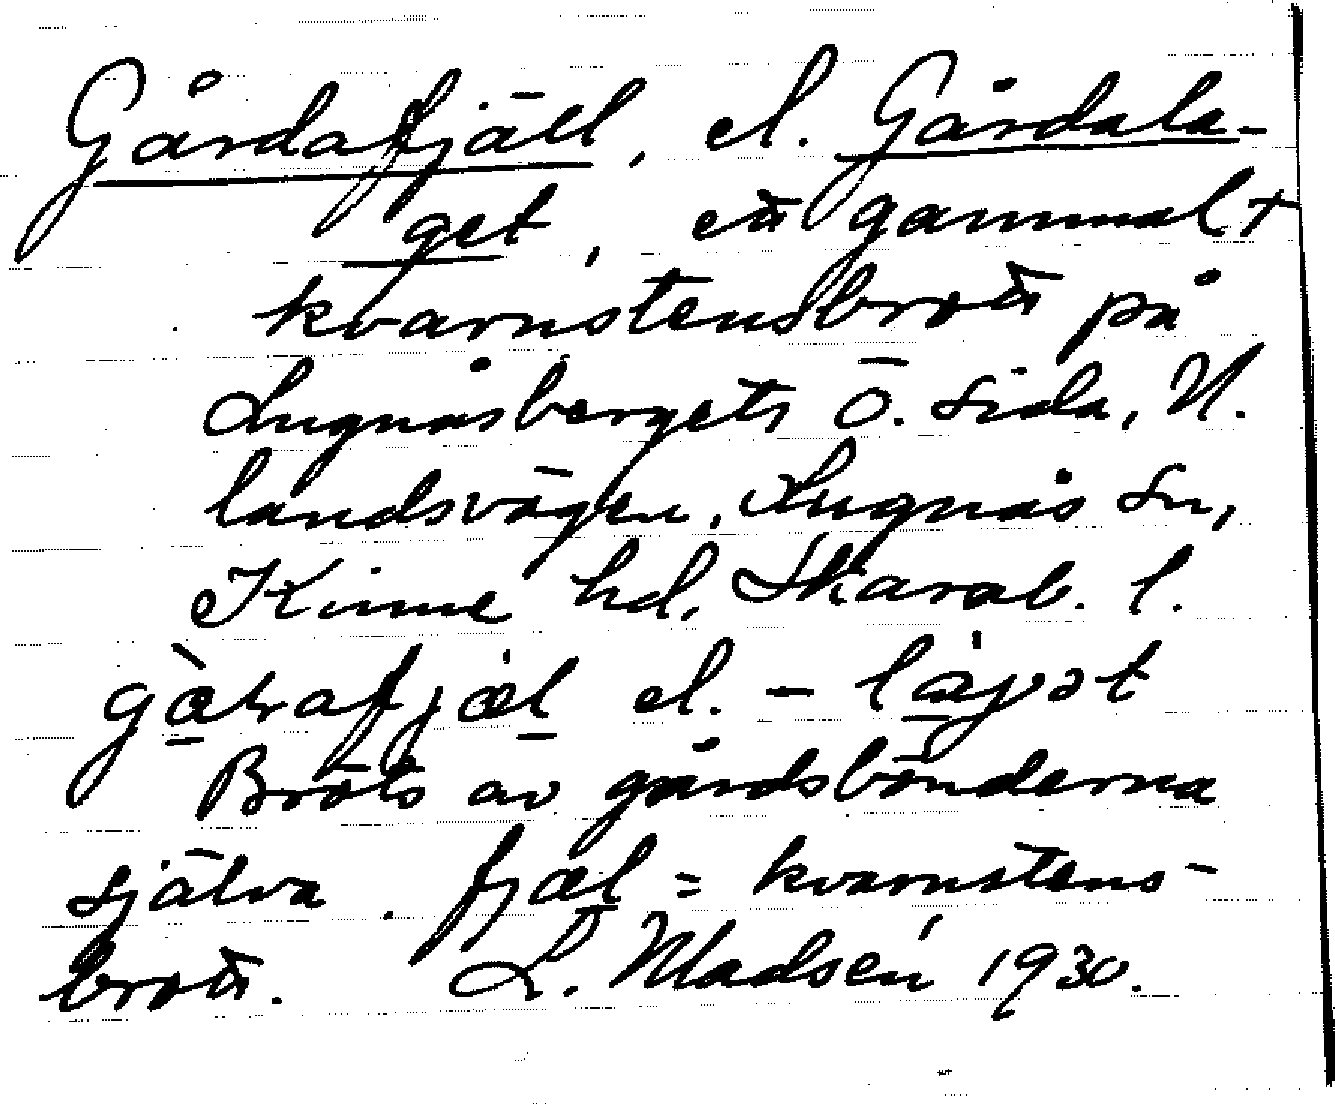 Gårdafjäll, el. Gårdala-
get, ett gammalt
kvarnstensbrott på
Lugnåsbergets ö. sida, N.
landsvägen, Lugnås sn,
Kinne hd, Skarab. l.
el. -
Bröts av gårdsbönderna
själva. fjæl = kvarnstens-
brott. L. Madsén 1930.